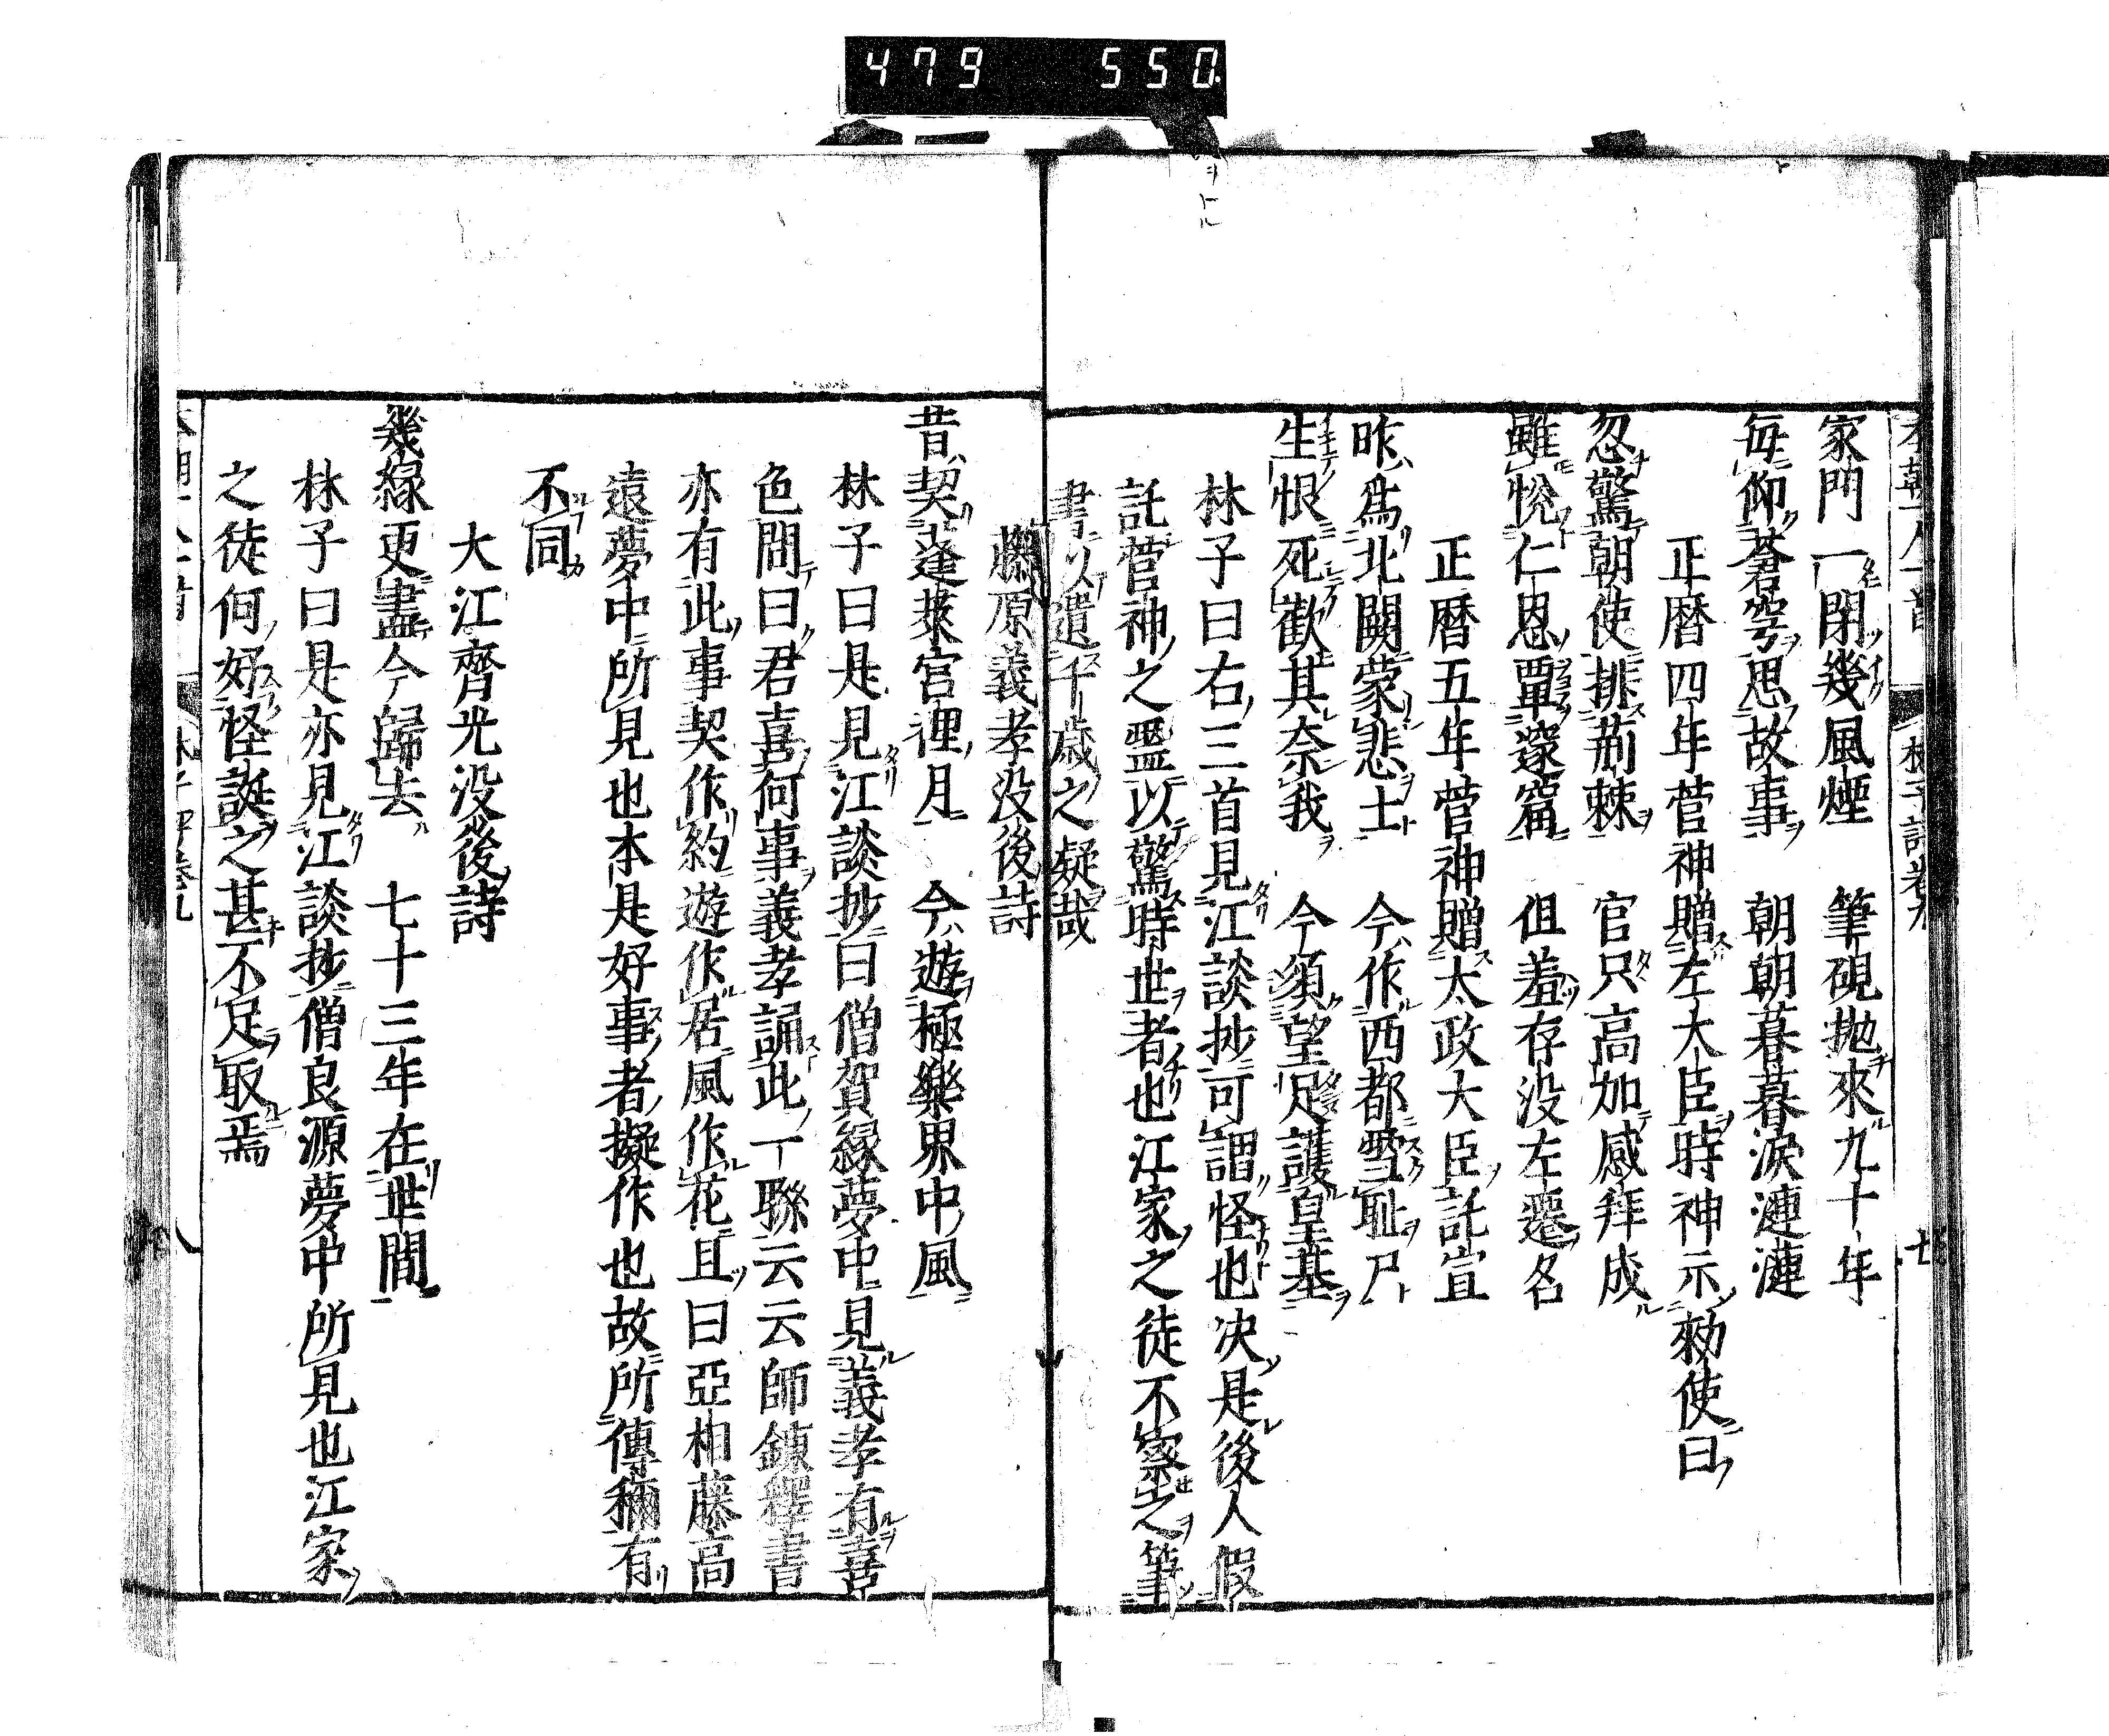 479 550
家門一閉幾風煙 筆硯抛來九十年
毎仰蒼穹思故事 朝朝暮暮淚漣漣
正曆四年菅神贈左大臣時神示勅使曰
忽驚朝使排荊棘 官只高加感拜成
雖悅仁恩覃邃窟 但羞存沒左遷名
正曆五年菅神贈太政大臣託宣
昨爲北闕蒙悲士 今作西都雪恥尸
生恨死歡其奈我 今須望足護皇基
林子曰右三首見江談抄可謂怪也決是後人假
託菅神之靈以驚時世者也江家之徒不察之筆
書以遺千歳之疑哉
藤原義孝沒後詩
昔契蓬萊宮裡月 今遊極樂界中風
林子曰是見江談抄曰僧賀縁夢中見義孝有喜
色問曰君喜何事義孝誦此一聯云云師錬釋書
亦有此事契作約遊作居風作花且曰亞相藤高
遠夢中所見也本是好事者擬作也故所傳稱有
不同
大江齊光沒後詩
幾緣更盡今歸去 七十三年在世間
林子曰是亦見江談抄僧良源夢中所見也江家
之徒何好怪誕之甚不足取焉